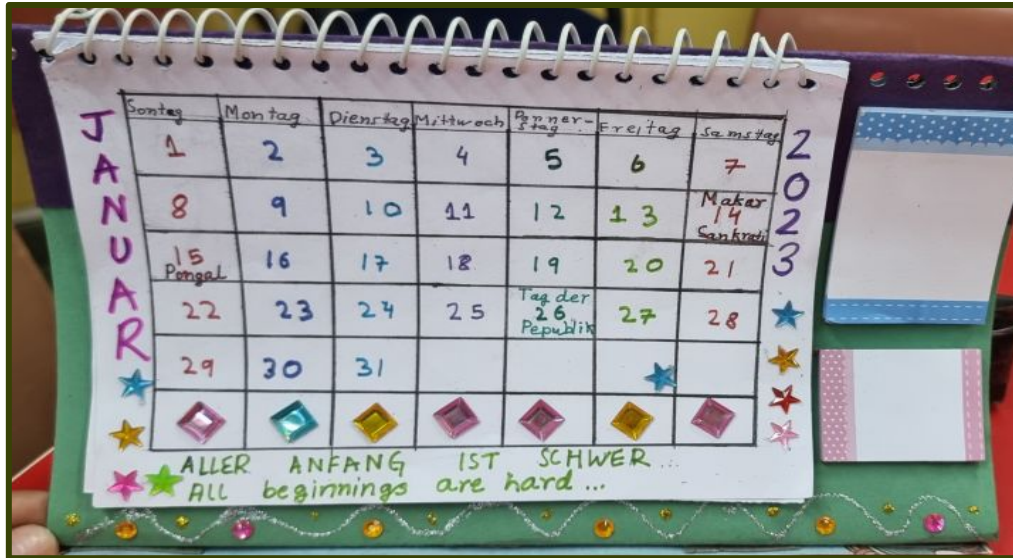 JANUAR
2023
Sontag Montag Dienstag Mittwoch Donner-stag Freitag Samstag
1 2 3 4 5 6 7
8 9 10 11 12 13 Makar 14 Sankrati
15 Pongal 16 17 18 19 20 21
22 23 24 25 Tag der 26 Pepublik 27 28
29 30 31
ALLER ANFANG IST SCHWER...
All beginnings are hard...